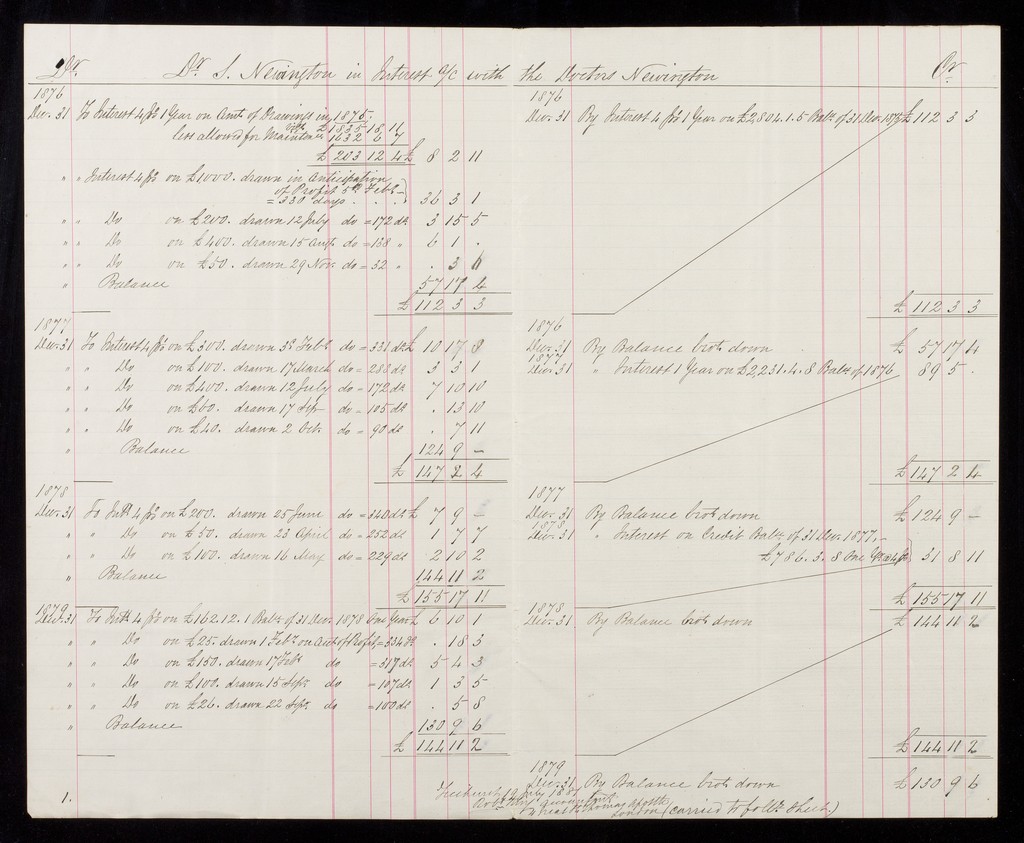 Dr. Dr. S. Newington in Interest a/c with the Doctors Newington Cr.
1876
Dec. 31 To Interest 4 pCt 1 Year on Amt. of Drawings in 1875.
£1835 18 11
less allowed for Maintence 1632 6 7
£ 203 12 4 £ 8 2 11
" " Interest 4 pCt on £1000. drawn in Anticipation
of Profit 5th Feby
= 330 days . . . 36 3 1
" " Do on £200. drawn 12 July do = 172 ds 3 15 5
" " Do on £400. drawn 15 Augt. do = 138 " 6 1 .
" " Do on £50. drawn 29 Nov. do = 32 " . 3 11
" Balance 57 17 4
£ 112 3 3
1877
Dec. 31 To Interest 4 pCt on £300. drawn 3d Feby do = 331 ds £ 10 17 8
" " Do on £100. drawn 17 March do = 288 ds 3 3 1
" " Do on £400. drawn 12 July do = 172 ds 7 10 10
" " Do on £60. drawn 17 Sep do = 105 ds . 13 10
" " Do on £40. drawn 2 Oct. do = 90 ds . 7 11
Balance 124 9 –
£ 147 2 4
1878
Dec. 31 To Intt. 4 pCt on £200. drawn 25 June do = 340 ds £ 7 9 –
" " Do on £50. drawn 23 April do = 252 ds 1 7 7
" " Do on £100. drawn 16 May do = 229 ds 2 10 2
" Balance 144 11 2
£ 155 17 11
1879
Dec. 31 To Intt. 4 pCt on £162.12.1 Balce of 31 Dec. 1878 One Year £ 6 10 1
" " Do on £25. drawn 1 Feby on Acct of Profit = 334 ds . 18 3
" " Do on £150. drawn 17 Feby do = 317 ds 5 4 3
" " Do on £100. drawn 15 Sept. do = 107 ds 1 3 5
" " Do on £26. drawn 22 Sept. do = 100 ds . 5 8
" Balance 130 9 6
£ 144 11 2
1.
1876
Dec. 31 By Interest 4 pCt 1 Year on £2804.1.5 Balce of 31 Dec. 1875 £ 112 3 3
£ 112 3 3
1876
Dec. 31 By Balance brot. down £ 57 17 4
1877
Dec. 31 " Interest 1 Year on £2,231.4.8 Balce of 1876 89 5 .
£ 147 2 4
1877
Dec. 31 By Balance brot. down £ 124 9 –
1878
Dec. 31 " Interest on Credit Balce of 31 Dec. 1877. –
£786.3.8 One Yr at 4 pCt 31 8 11
£ 155 17 11
1878
Dec. 31 By Balance brot down £ 144 11 2
£ 144 11 2
1879
Dec. 31 By Balance brot. down £ 130 9 6
Ticehurst 19 July 1881
London (carried to fo 2 Sheet)